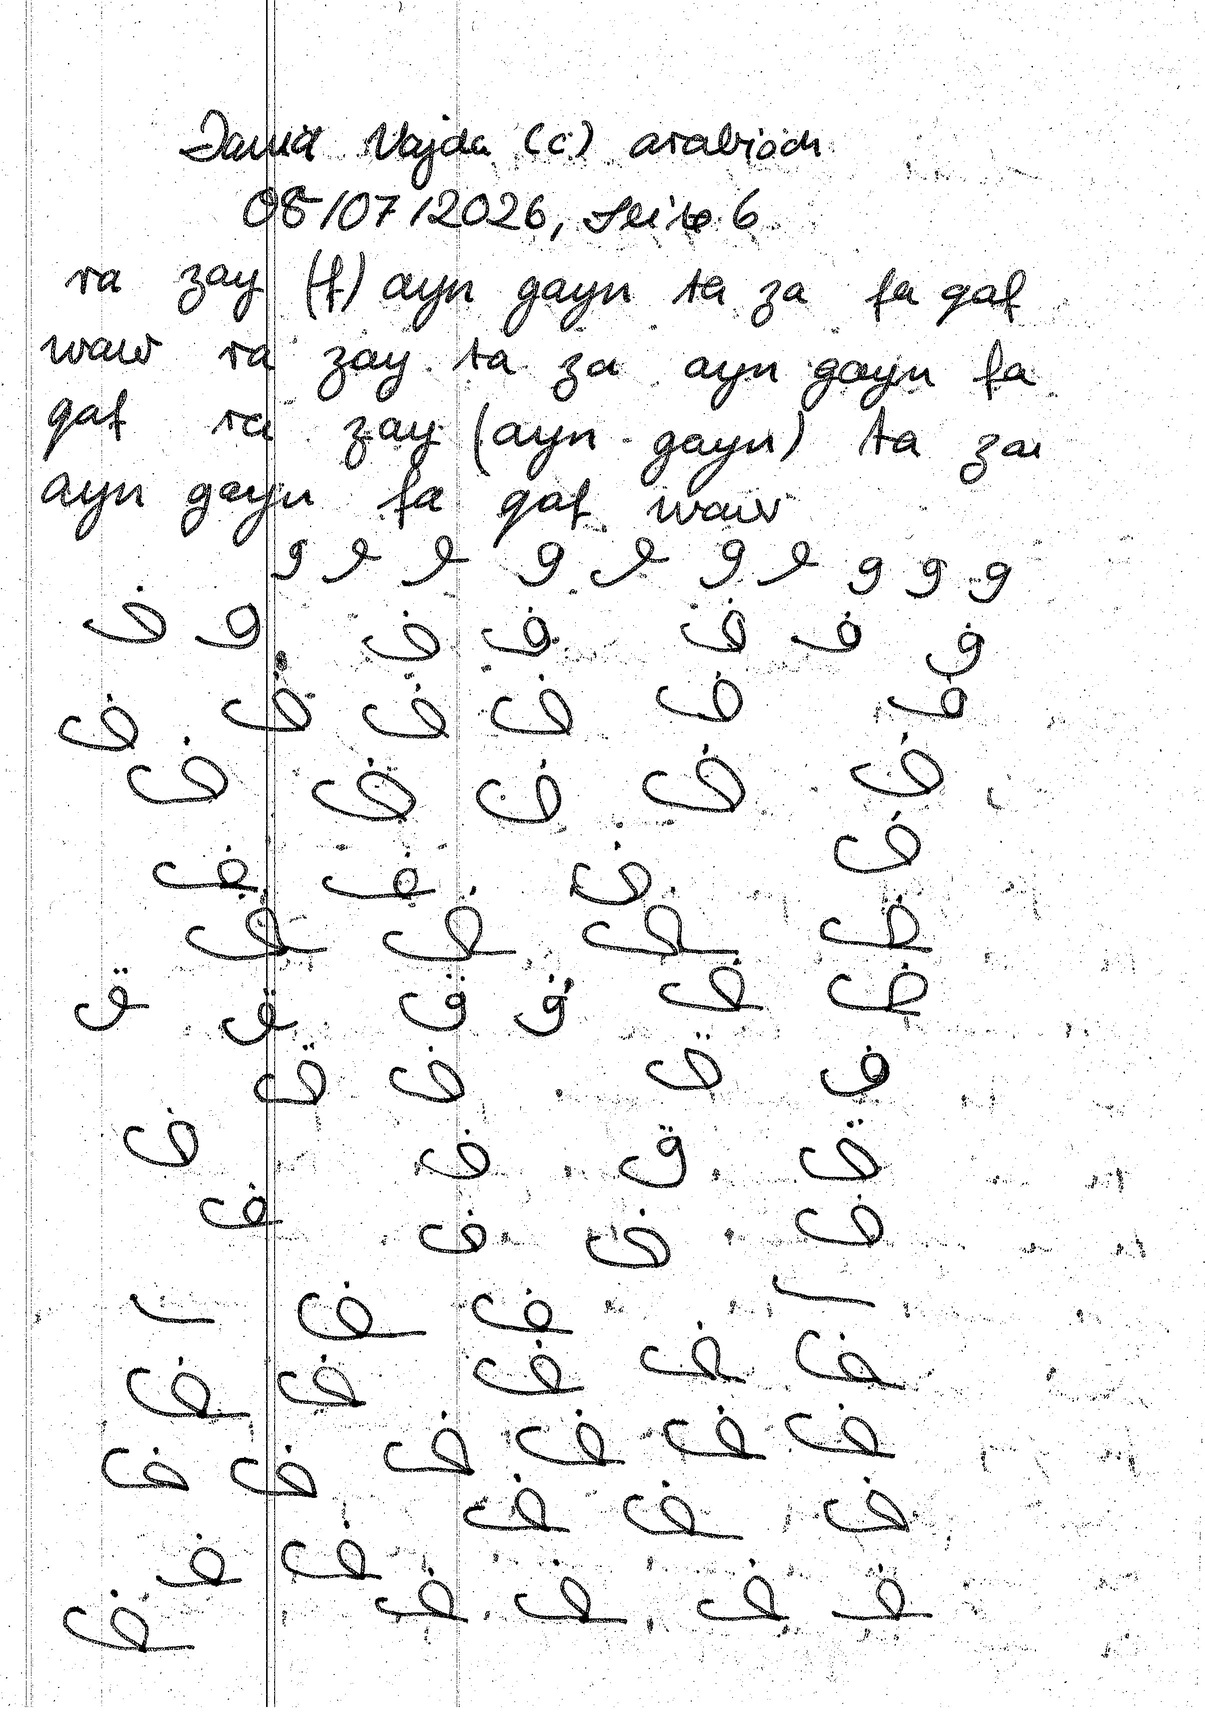 David Vajda (c) arabisch
08/07/2026, Seite 6
ra zay (f) ayn gayn ta za fa qaf
waw ra zay ta za ayn gayn fa
qaf ra zay (ayn - gayn) ta za
ayn gayn fa qaf waw
و و و و و و و و و و
ف و ف ف ف ف و
ف ف ف ف ف ف
ف ف ف ف ف
ف
ف ف ف
ف ف ف ف
ق ق ق ق ف ف
ق ف ق ف
ف ف ق ق
ف ف ف ف
ف ف
ف ف ف ف ف
ف ف ف ف ف ف
ف ف ف
ف ف
ف ف ف ف ف